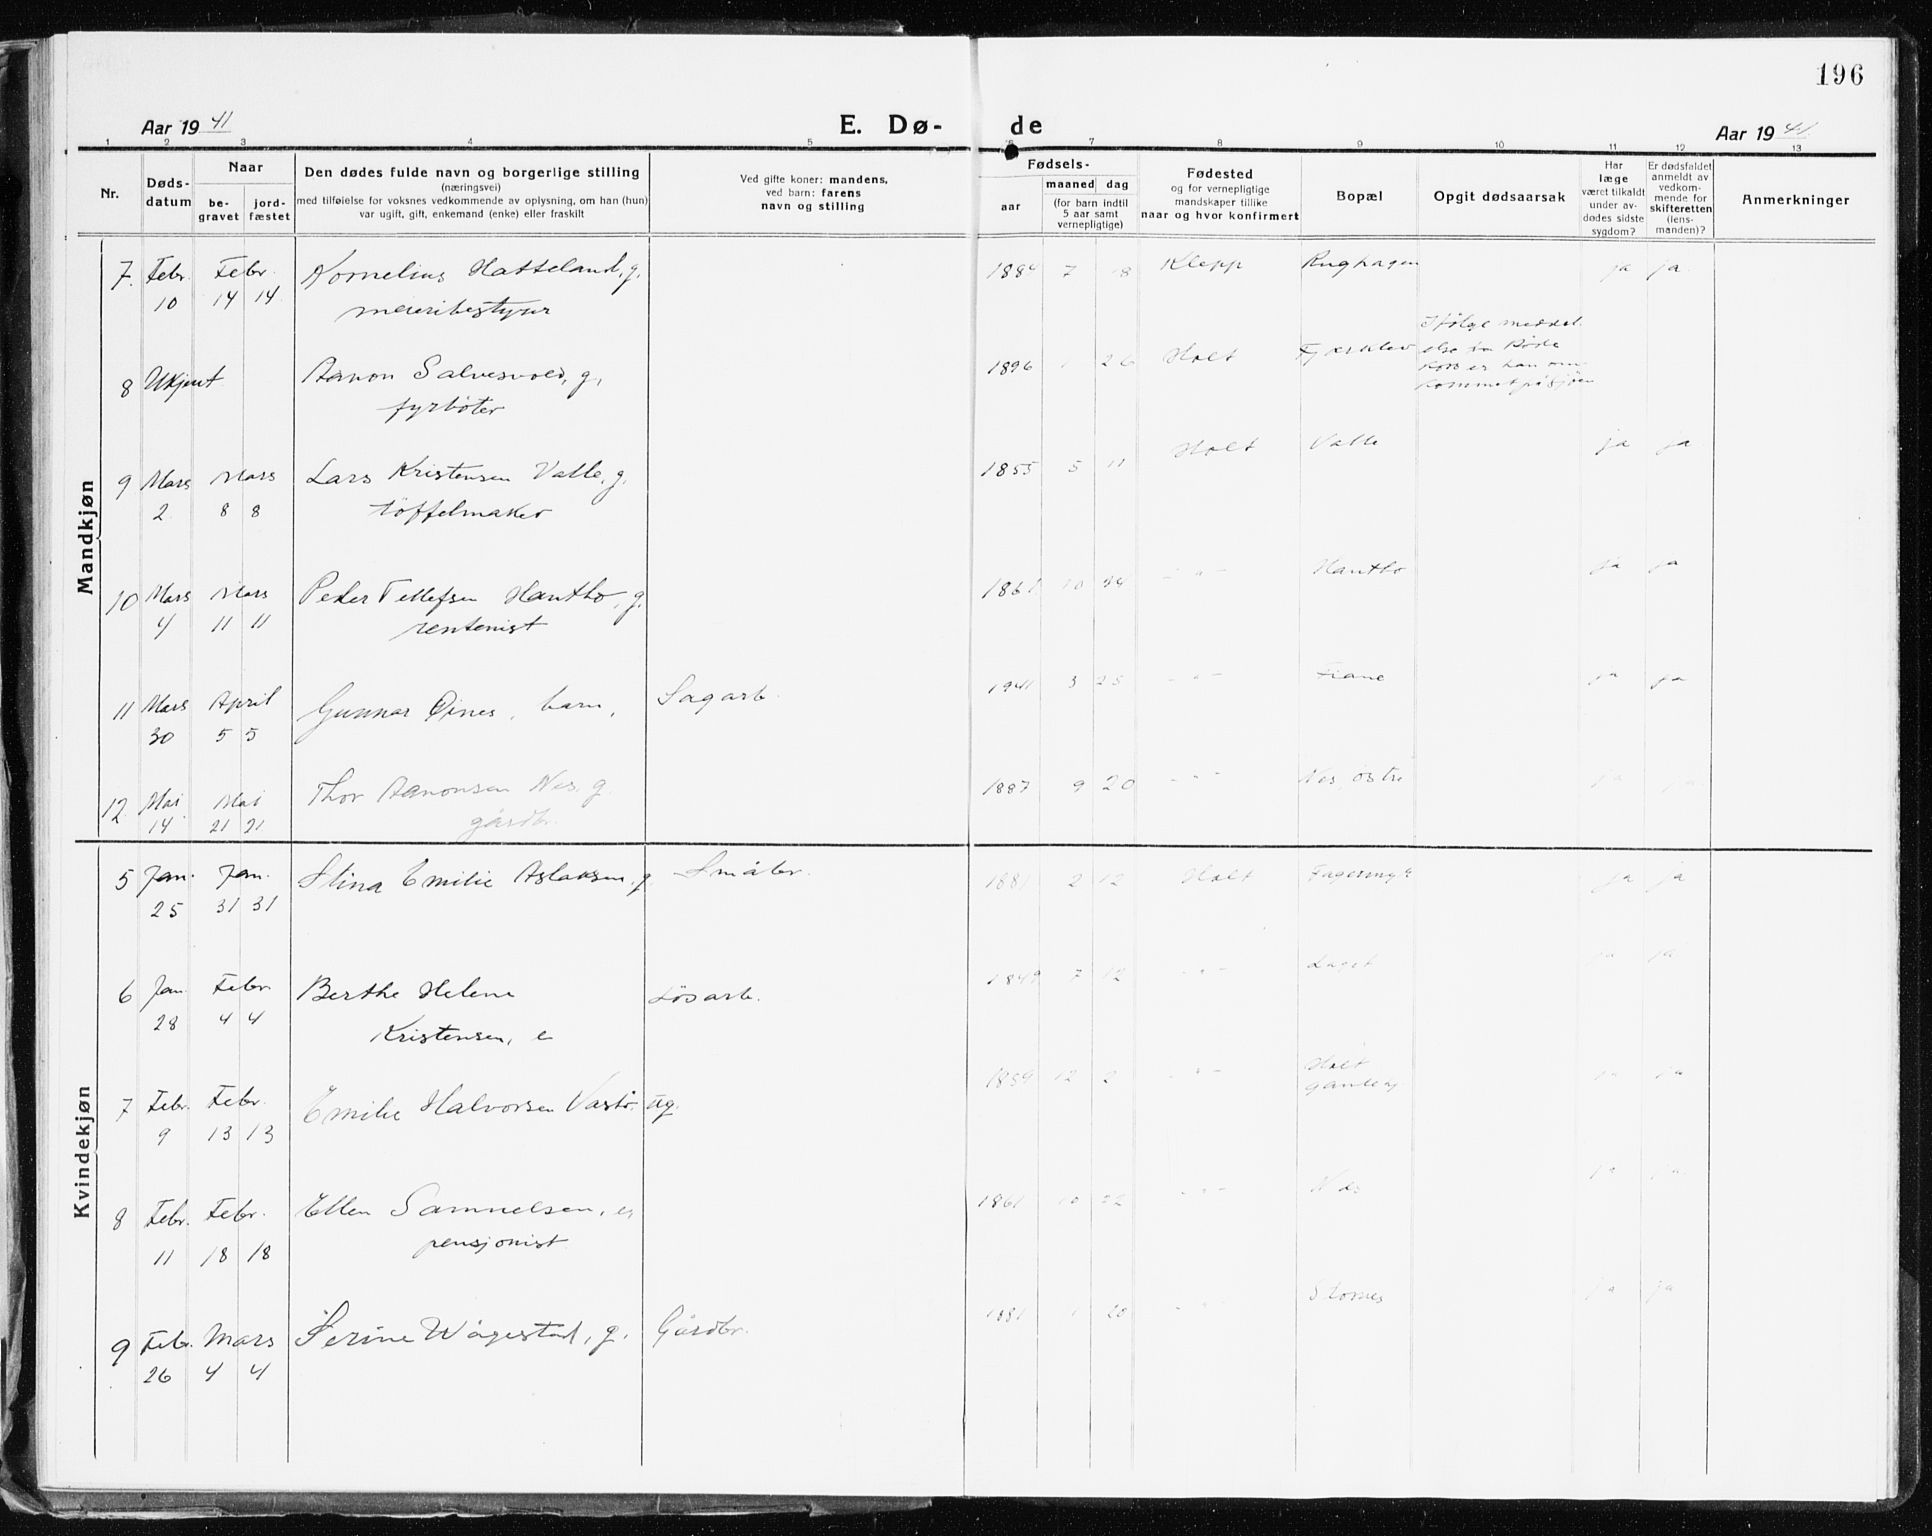 196
Aar 1941
E. Dø-
de
Aar 1941
1 2 3 4 5 6 7 8 9 10 11 12 13
Nr.
Døds-
datum
Naar
be-
gravet
jord-
fæstet
Den dødes fulde navn og borgerlige stilling
(næringsvei)
med tilføielse for voksnes vedkommende av oplysning, om han (hun)
var ugift, gift, enkemand (enke) eller fraskilt
Ved gifte koner: mandens,
ved barn: farens
navn og stilling
Fødsels-
aar
maaned dag
(for barn indtil
5 aar samt
vernepligtige)
Fødested
og for vernepligtige
mandskaper tillike
naar og hvor konfirmert
Bopæl
Opgit dødsaarsak
Har
læge
været tilkaldt
under av-
dødes sidste
sygdom?
Er dødsfaldet
anmeldt av
vedkom-
mende for
skifteretten
(lens-
manden)?
Anmerkninger
Mandkjøn
7. Febr. Febr. Kornelius Hatteland, g. 1884 7 18 Klepp Rughagen ja ja
10 14 14 meieribestyrer
8 Ukjent Aanon Salvesvold, g. 1896 1 26 Holt Ifølge meddel.
fyrbøter else fra Røde
Kors er han om
kommet på sjøen
9 Mars Mars Lars Kristensen Valle, g. 1855 5 11 Holt Valle ja ja
2 8 8 tøffelmaker
10 Mars Mars Peder Tellefsen Hantho, g. 1861 10 - " - Hantho ja ja
4 11 11 rentenist
11 Mars April Gunnar Øines, barn, Sagarb. 1941 3 25 - " - Fiane ja ja
30 5 5
12 Mai Mai Thor Aanonsen Nes, g. 1887 9 20 - " - Nes, østre ja ja
14 21 21 gårdbr.
Kvindekjøn
5 Jan. Jan. Stina Emilie Aslaksen, g. Småbr. 1881 2 12 Holt ja ja
25 31 31
6 Jan. Febr. Berthe Helene Løsarb. 1849 7 12 - " - Laget ja ja
28 4 4 Kristensen, e
7 Febr. Febr. Emilie Halvorsen ug. 1859 12 2 - " - Holt ja ja
9 13 13 gamlehj.
8 Febr. Febr. Ellen Samuelsen, e, 1861 10 22 - " - Nes ja ja
11 18 18 pensjonist
9 Febr. Mars Serine Vågestad, g. Gårdbr. 1881 1 20 - " - ja ja
26 4 4